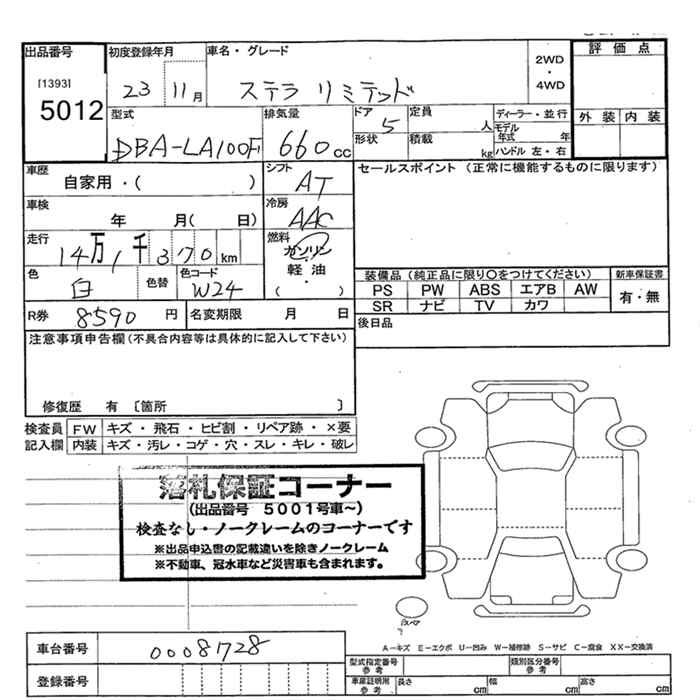 出品番号 初度登録年月 車名・グレード 2WD ・ 4WD 評価点
[1393]
5012 23 11月 ステラ リミテッド
型式 排気量 ドア 定員 ディーラー・並行 外装 内装
DBA-LA100F 660cc 5 人 モデル年式 年
形状 積載 kg ハンドル 左・右
車歴 シフト セールスポイント (正常に機能するものに限ります)
自家用・( ) AT
車検 冷房
年 月( 日) AAC
走行 燃料
14万1千370km ガソリン
色 色替 色コード 軽油 装備品 (純正品に限り○をつけてください) 新車保証書
白 W24 ・ ( ) PS PW ABS エアB AW 有・無
SR ナビ TV カワ
R券 8590円 名変期限 月 日 後日品
注意事項申告欄(不具合内容等は具体的に記入して下さい)
修復歴 有 〔箇所 〕
検査員 FW キズ・飛石・ヒビ割・リペア跡・×要
記入欄 内装 キズ・汚レ・コゲ・穴・スレ・キレ・破レ
落札保証コーナー
(出品番号 5001号車~)
検査なし・ノークレームのコーナーです
※出品申込書の記載違いを除きノークレーム
※不動車、冠水車など災害車も含まれます。
A-キズ E-エクボ U-凹み W-補修跡 S-サビ C-腐食 XX-交換済
車台番号 0008728
型式指定番号 参考 類別区分番号 参考
登録番号 車庫証明用 参考 長さ cm 幅 cm 高さ cm